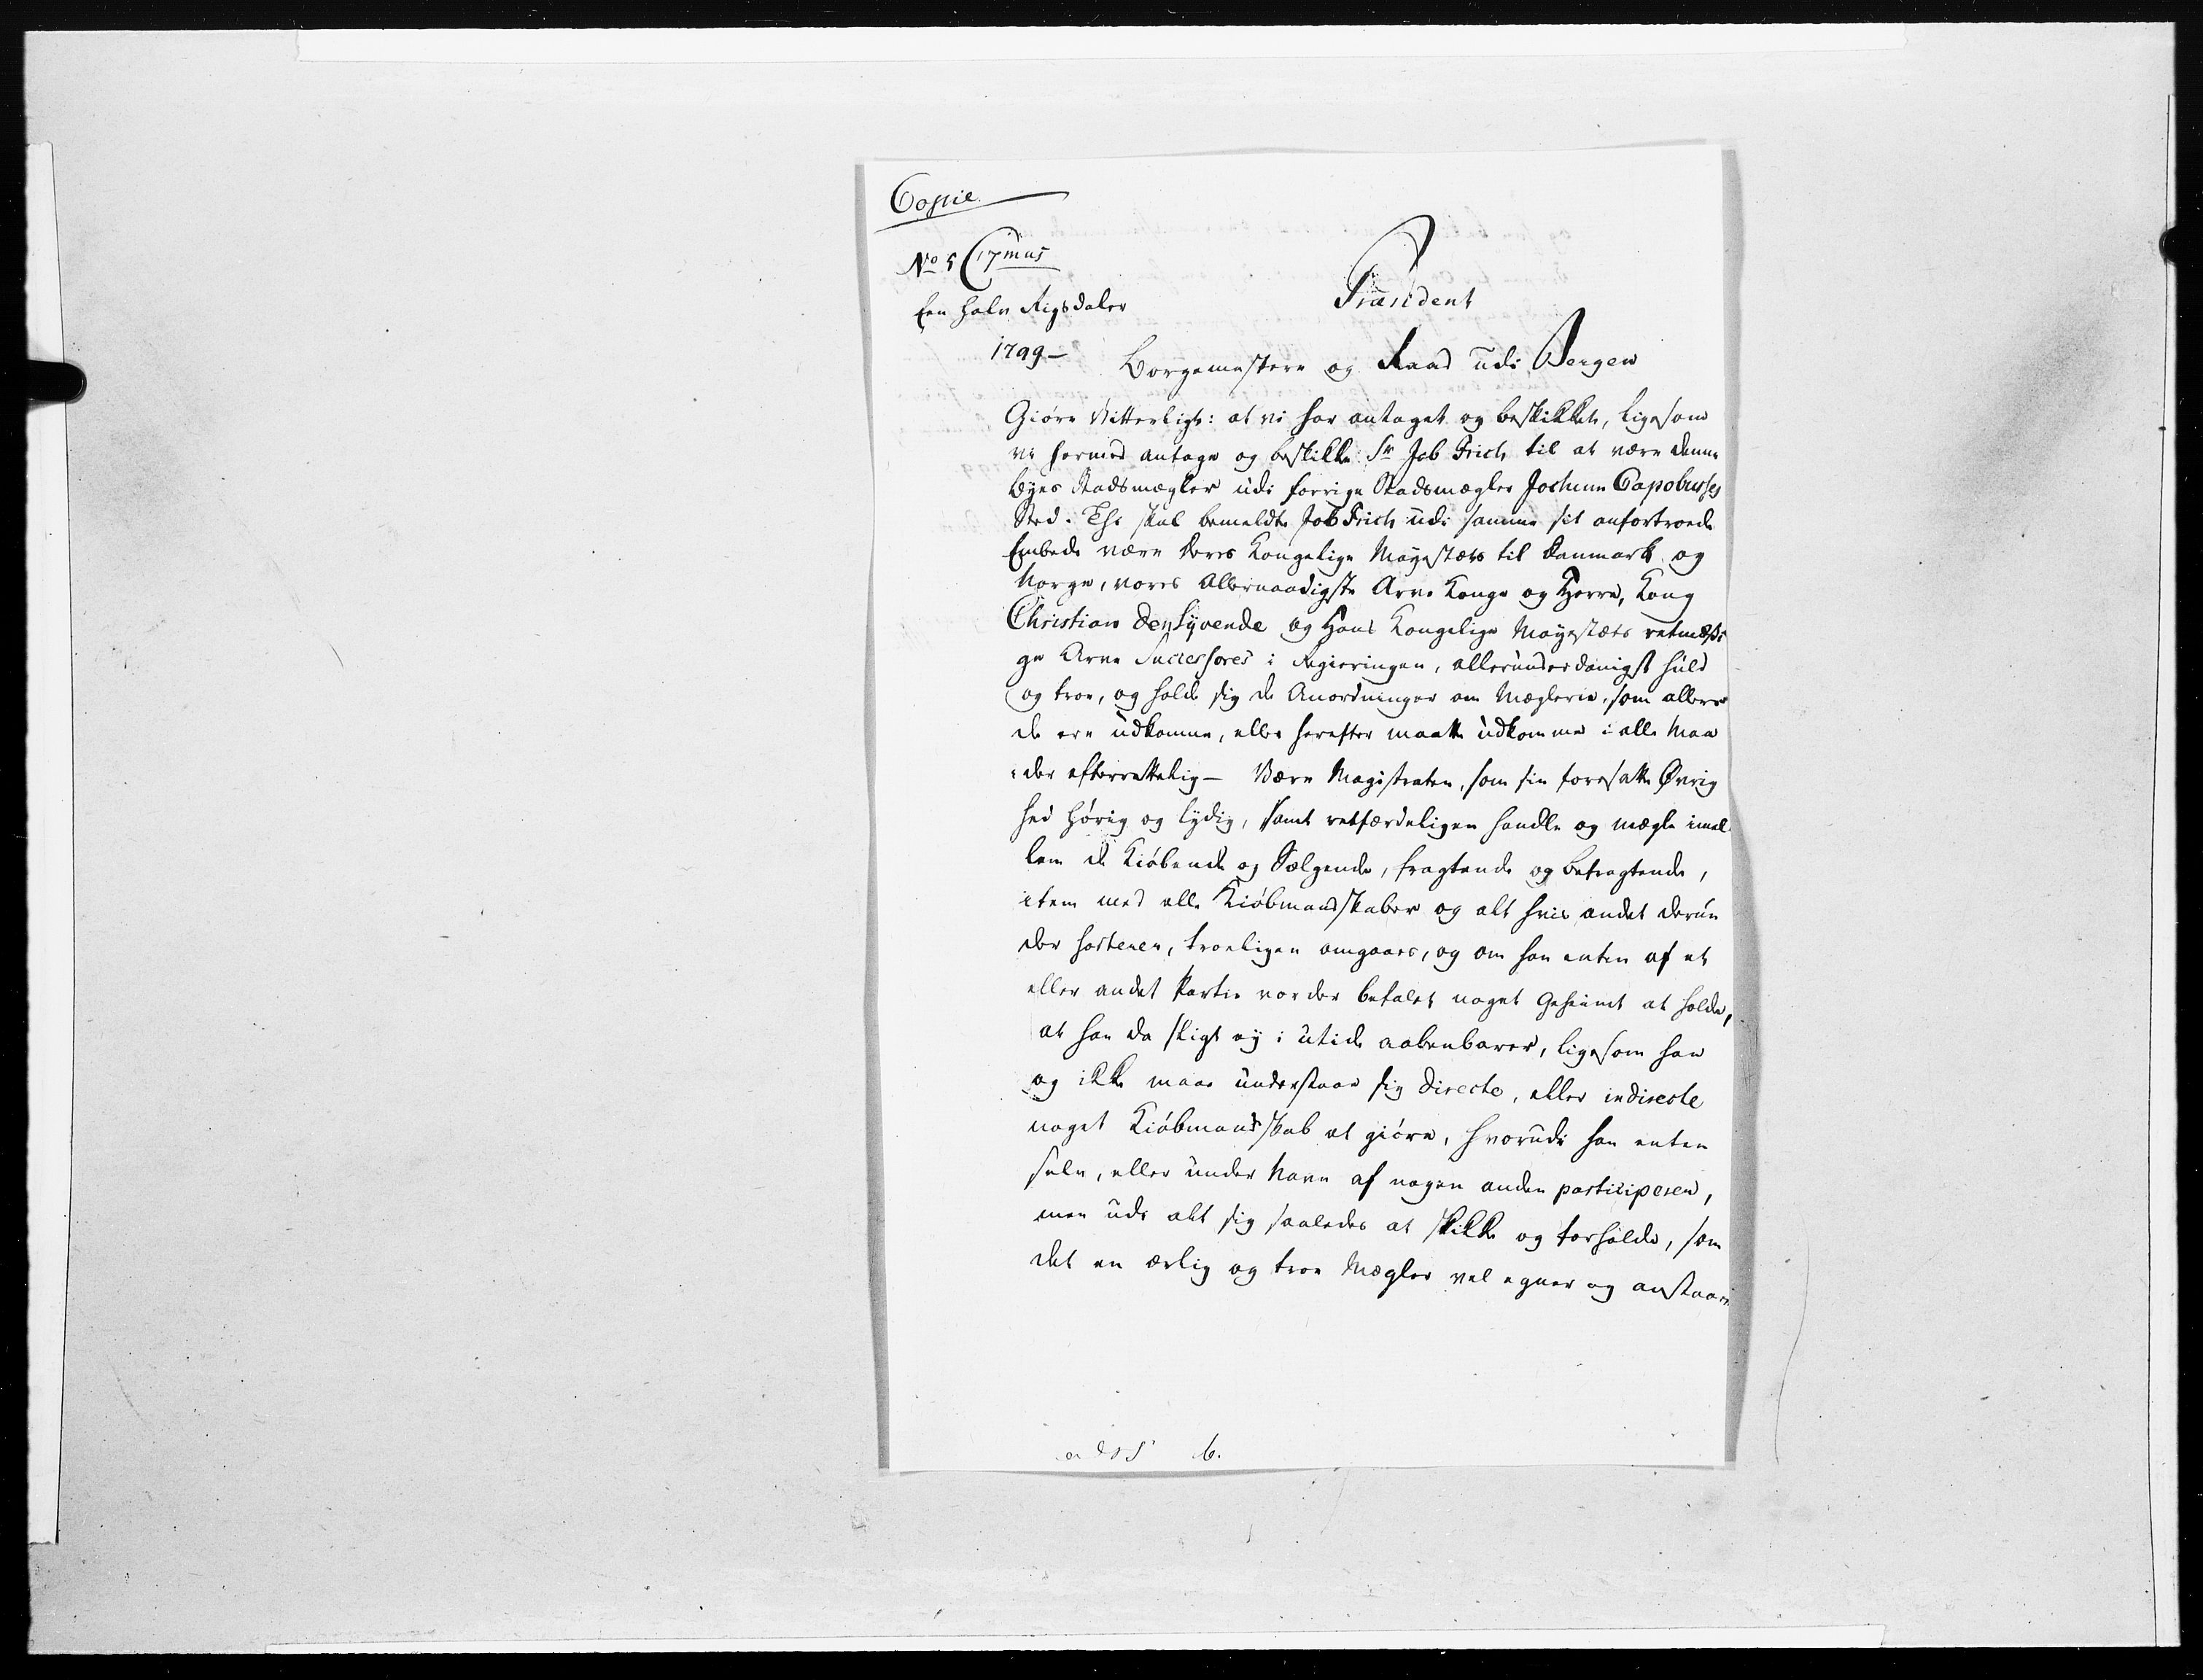 Copie
No 5 C 17mus
Een halv Rigsdaler
1799 —
Præsident
Borgemestere og Raad udi Bergen
Giøre Vitterligt: at vi har antaget og beskikket, ligesom
vi hermed antage og beskikke Sr Job Frich til at være denne
Byes Stadsmægler udi forrige Stadsmægler Jochum Capobusses
Sted. Thi skal bemeldte Job Frich udi samme sit anfortroede
Embede være Deres Kongelige Mayestæts til Danmark og
Norge, vores Allernaadigste Arve Konge og Herre, Kong
Christian den Syvende og Hans Kongelige Mayestæts retmæssi
ge Arve Successores i Regieringen, allerunderdanigst huld
og troe, og holde sig de Anordninger om Mæglerie, som allere
de ere udkomne, eller herefter maatte udkomme i alle Maa
der efterrettelig — Være Magistraten, som sin foresatte Øvrig
hed hørig og lydig, samt retfærdeligen handle og mægle imel
lem de Kiøbende og Sælgende, fragtende og befragtende,
item med alle Kiøbmandskaber og alt hvis andet derun
der sorterer, troeligen omgaaes, og om han enten af et
eller andet Partie vorder befalet noget Geheimt at holde,
at han da sligt ey i utide aabenbarer, ligesom han
og ikke maae understaae sig directe, eller indirecte
noget Kiøbmandskab at giøre, hvorudi han enten
selv, eller under Navn af nogen anden participerer,
men udi alt sig saaledes at skikke og forholde, som
det en ærlig og troe Mægler vel egner og anstaaer